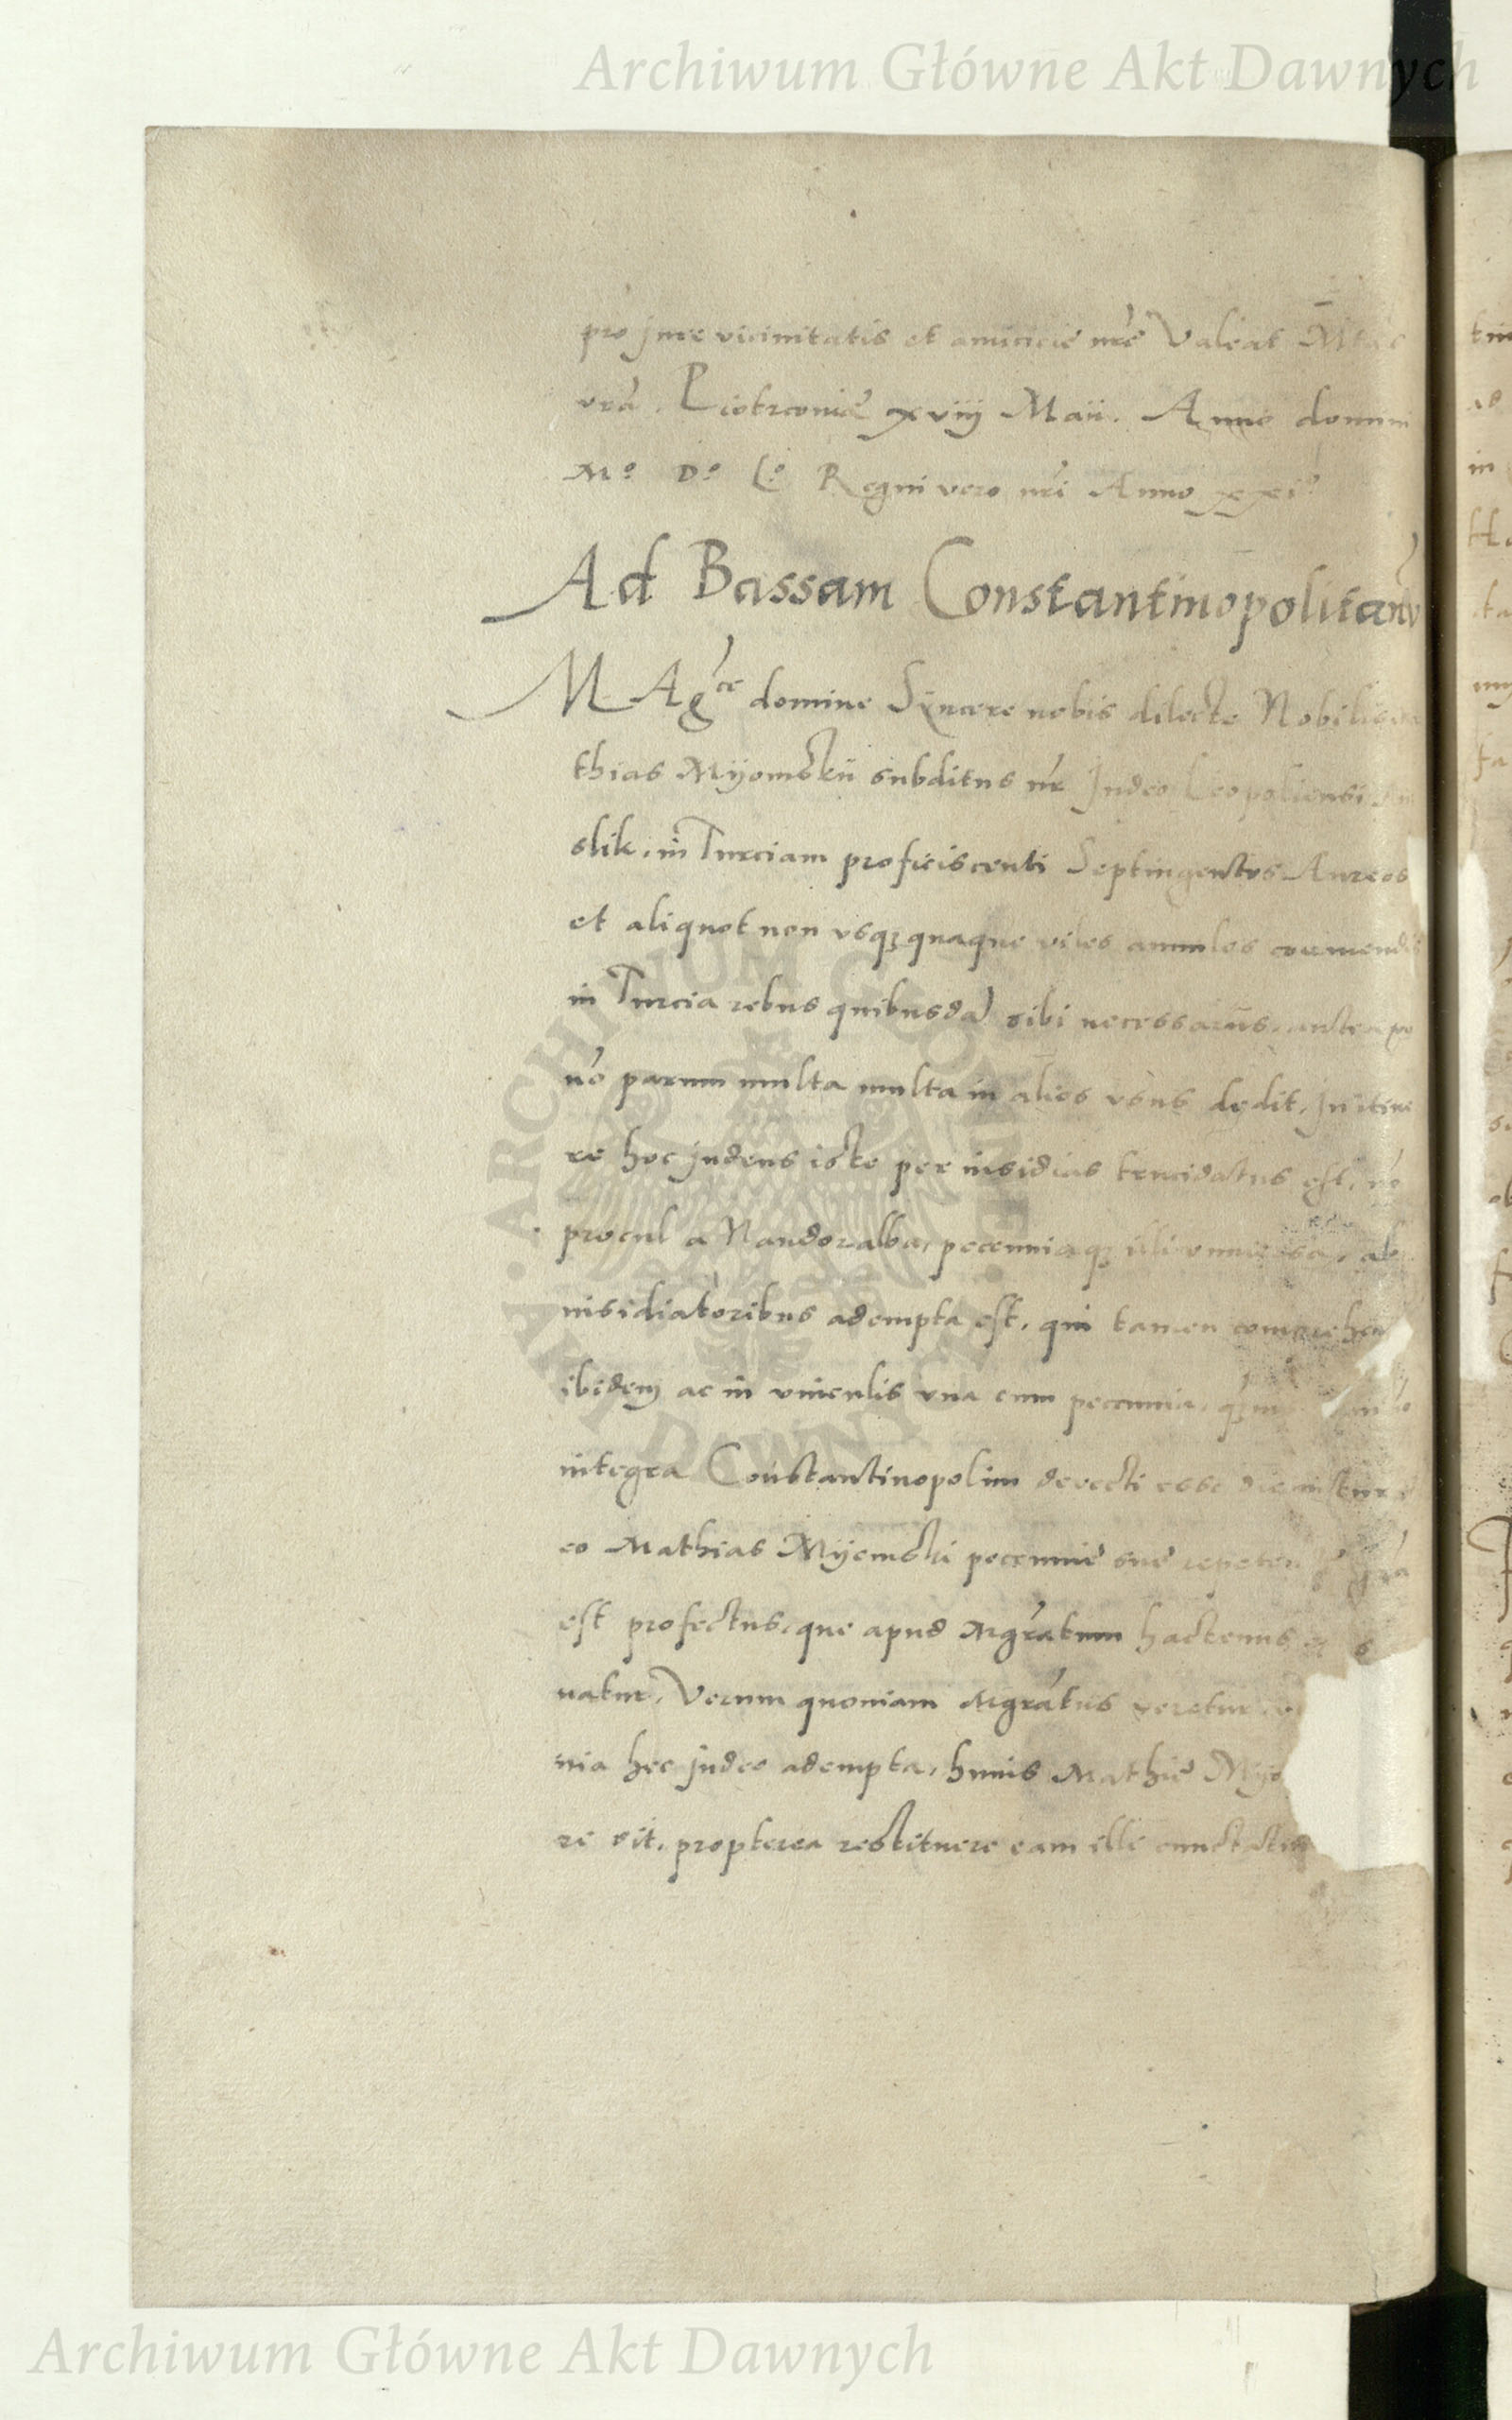 Archiwum Główne Akt Dawnych
pro jure vicinitatis et amicicie nr̃e Valeat M̃tas
vrã. Piotrconiæ xviij Maii. Anno domini
Mº Dº Lº Regni vero nr̃i Anno xxiº
Ad Bassam Constantinopolitanũ
MAgce domine Syncere nobis dilecte Nobilis
thias Myomskii subditus nr̃ Judeo Leopoliensi
slik, in Turciam proficiscenti Septingentos Aureos
et aliquot non usq; quaque viles annulos coemendis
in Turcia rebus quibusdã sibi necessariis, antea
nõ parum multa multa in alios usus dedit, In itine
re hoc judeus iste per insidias trucidatus est, nõ
procul a Nandoralba, pecuniaq; illi universa, ab
insidiatoribus adempta est, qui tamen comprehen
ibidem ac in vinculis una cum pecunia,
integra Constantinopolim devecti esse dicuntur
eo Mathias Myemski pecunie sue repeten grã
est profectus, que apud Mgrãtum hactenus
vatur, Verum quoniam Mgrãtus veretur
nia hec judeo adempta, huius Mathie Myo
re sit, propterea restituere eam illi cunctatus
ARCHIWUM GŁÓWNE · AKT DAWNYCH ·
Archiwum Główne Akt Dawnych